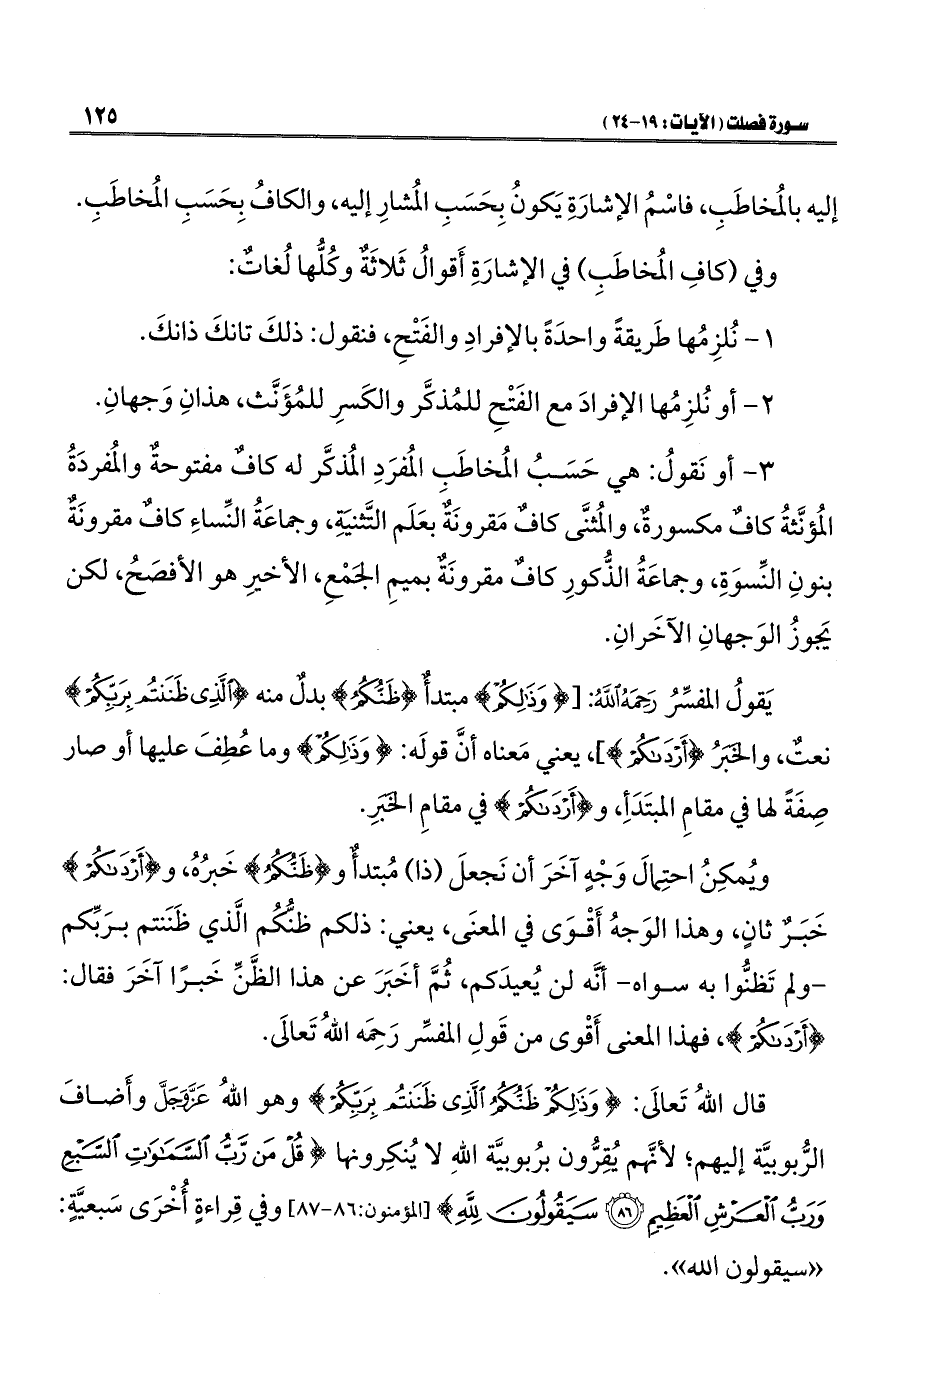 سورة فصلت (الآيات: ١٩-٢٤) ١٢٥
إليه بالمُخاطَبِ، فاسْمُ الإشارَةِ يَكونُ بِحَسَبِ المُشارِ إليه، والكافُ بِحَسَبِ المُخاطَبِ.
وفي (كافِ المُخاطَبِ) في الإشارَةِ أَقوالٌ ثَلاثَةٌ وكُلُّها لُغاتٌ:
١- نُلزِمُها طَريقةً واحدَةً بالإفرادِ والفَتْحِ، فنقول: ذلكَ تانكَ ذانكَ.
٢- أو نُلزِمُها الإفرادَ مع الفَتْحِ للمُذكَّر والكَسرِ للمُؤَنَّث، هذانِ وَجهانِ.
٣- أو نَقولُ: هي حَسَبُ المُخاطَبِ المُفرَدِ المُذكَّر له كافٌ مفتوحةٌ والمُفردَةُ
المُؤنَّثةُ كافٌ مكسورةٌ، والمُثنَّى كافٌ مَقرونَةٌ بعَلَم التَّثنيَةِ، وجماعَةُ النِّساءِ كافٌ مقرونَةٌ
بنونِ النِّسوَةِ، وجماعَةُ الذُّكورِ كافٌ مقرونَةٌ بميمِ الجَمْعِ، الأخيرِ هو الأفصَحُ، لكن
يَجوزُ الوَجهانِ الآخَرانِ.
يَقولُ المفسِّرُ رَحِمَهُ اللَّهُ: [﴿وَذَٰلِكُمْ﴾ مبتدأٌ ﴿ظَنُّكُمُ﴾ بدلٌ منه ﴿ٱلَّذِى ظَنَنتُم بِرَبِّكُمْ﴾
نعتٌ، والخَبَرُ ﴿أَرْدَىٰكُمْ﴾]، يعني مَعناه أنَّ قولَه: ﴿وَذَٰلِكُمْ﴾ وما عُطِفَ عليها أو صار
صِفَةً لها في مقامِ المبتَدَأِ، و﴿أَرْدَىٰكُمْ﴾ في مقامِ الخَبَرِ.
ويُمكِنُ احتِمالَ وَجْهٍ آخَرَ أن نَجعلَ (ذا) مُبتدأٌ و﴿ظَنُّكُمُ﴾ خَبرُهُ، و﴿أَرْدَىٰكُمْ﴾
خَبَرٌ ثانٍ، وهذا الوَجهُ أَقْوَى في المعنَى، يعني: ذلكم ظنُّكُم الَّذي ظَنَنتم بِرَبِّكم
-ولم تَظنُّوا به سواه- أنَّه لن يُعيدَكم، ثُمَّ أخبَرَ عن هذا الظَّنِّ خَبرًا آخَرَ فقال:
﴿أَرْدَىٰكُمْ﴾، فهذا المعنى أَقْوى من قَولِ المفسِّر رَحِمَه اللهُ تَعالَى.
قال اللهُ تَعالَى: ﴿وَذَٰلِكُمْ ظَنُّكُمُ ٱلَّذِى ظَنَنتُم بِرَبِّكُمْ﴾ وهو اللهُ عَزَّوَجَلَّ وأَضافَ
الرُّبوبيَّة إليهم؛ لأنَّهم يُقِرُّون برُبوبيَّة اللهِ لا يُنكِرونها ﴿قُلْ مَن رَّبُّ ٱلسَّمَٰوَٰتِ ٱلسَّبْعِ
وَرَبُّ ٱلْعَرْشِ ٱلْعَظِيمِ ۝٨٦ سَيَقُولُونَ لِلَّهِ﴾ [المؤمنون:٨٦-٨٧] وفي قِراءةٍ أُخْرَى سَبعيَّةٍ:
«سيقولون الله».